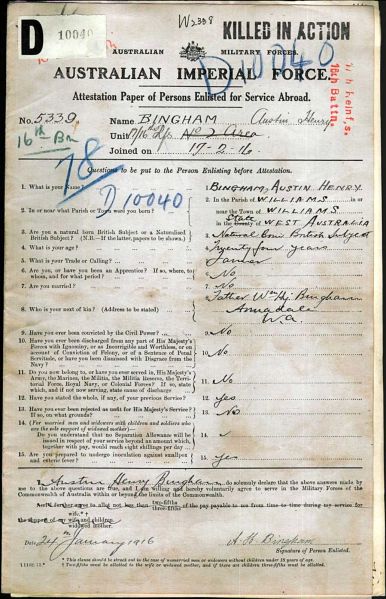 W2388
KILLED IN ACTION
D 10040
AUSTRALIAN MILITARY FORCES.
D10040
AUSTRALIAN IMPERIAL FORCE.
16th Battn.
Attestation Paper of Persons Enlisted for Service Abroad.
No. 5339 Name BINGHAM Austin Henry
16th Bn Unit No 2 Area
Joined on 17-2-16
78
D10040
Questions to be put to the Person Enlisting before Attestation.
1. What is your Name? BINGHAM, AUSTIN HENRY
2. In or near what Parish or Town were you born? In the Parish of WILLIAMS in or
near the Town of WILLIAMS
State WEST AUSTRALIA
3. Are you a natural born British Subject or a Naturalised
British Subject? (N.B.—If the latter, papers to be shown). Natural Born British Subject
4. What is your age? Twenty four years
5. What is your Trade or Calling? Farmer
6. Are you, or have you been an Apprentice? If so, where, to
whom, and for what period? No
7. No
8. Who is your next of kin? (Address to be stated) Father Wm Hy. Bingham
Armadale
WA
9. Have you ever been convicted by the Civil Power? No
10. Have you ever been discharged from any part of His Majesty's
Forces with Ignominy, or as Incorrigible and Worthless, or on
account of Conviction of Felony, or of a Sentence of Penal
Servitude, or have you been dismissed with Disgrace from the
Navy? No
11. Do you now belong to, or have you ever served in, His Majesty's
Army, the Marines, the Militia, the Militia Reserve, the Terri-
torial Force, Royal Navy, or Colonial Forces? If so, state
which, and if not now serving, state cause of discharge No
12. Have you stated the whole, if any, of your previous Service? Yes
13. Have you ever been rejected as unfit for His Majesty's Service?
If so, on what grounds? No
14. (For married men and widowers with children and soldiers who
are the sole support of widowed mother)
Do you understand that no Separation Allowance will be
issued in respect of your service beyond an amount which,
together with pay, would reach eight shillings per day?
15. Are you prepared to undergo inoculation against smallpox and
enteric fever? Yes
I, Austin Henry Bingham do solemnly declare that the above answers made by
me to the above questions are true, and I am willing and hereby voluntarily agree to serve in the Military Forces of the
Commonwealth of Australia within or beyond the limits of the Commonwealth.
And I further agree to allot not less than two-fifths of the pay payable to me from time to time during my service
three-fifths
for the support of my wife
wife and children
widowed mother.
Date 24th January 1916 A H Bingham
Signature of Person Enlisted.
* This clause should be struck out in the case of unmarried men or widowers without children under 18 years of age.
† Two-fifths must be allotted to the wife or widowed mother, and if there are children three-fifths must be allotted.